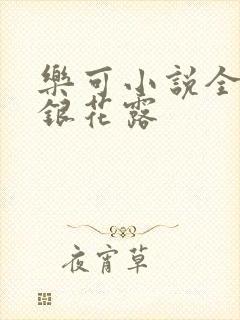 樂可小説全
銀花露
夜宵草